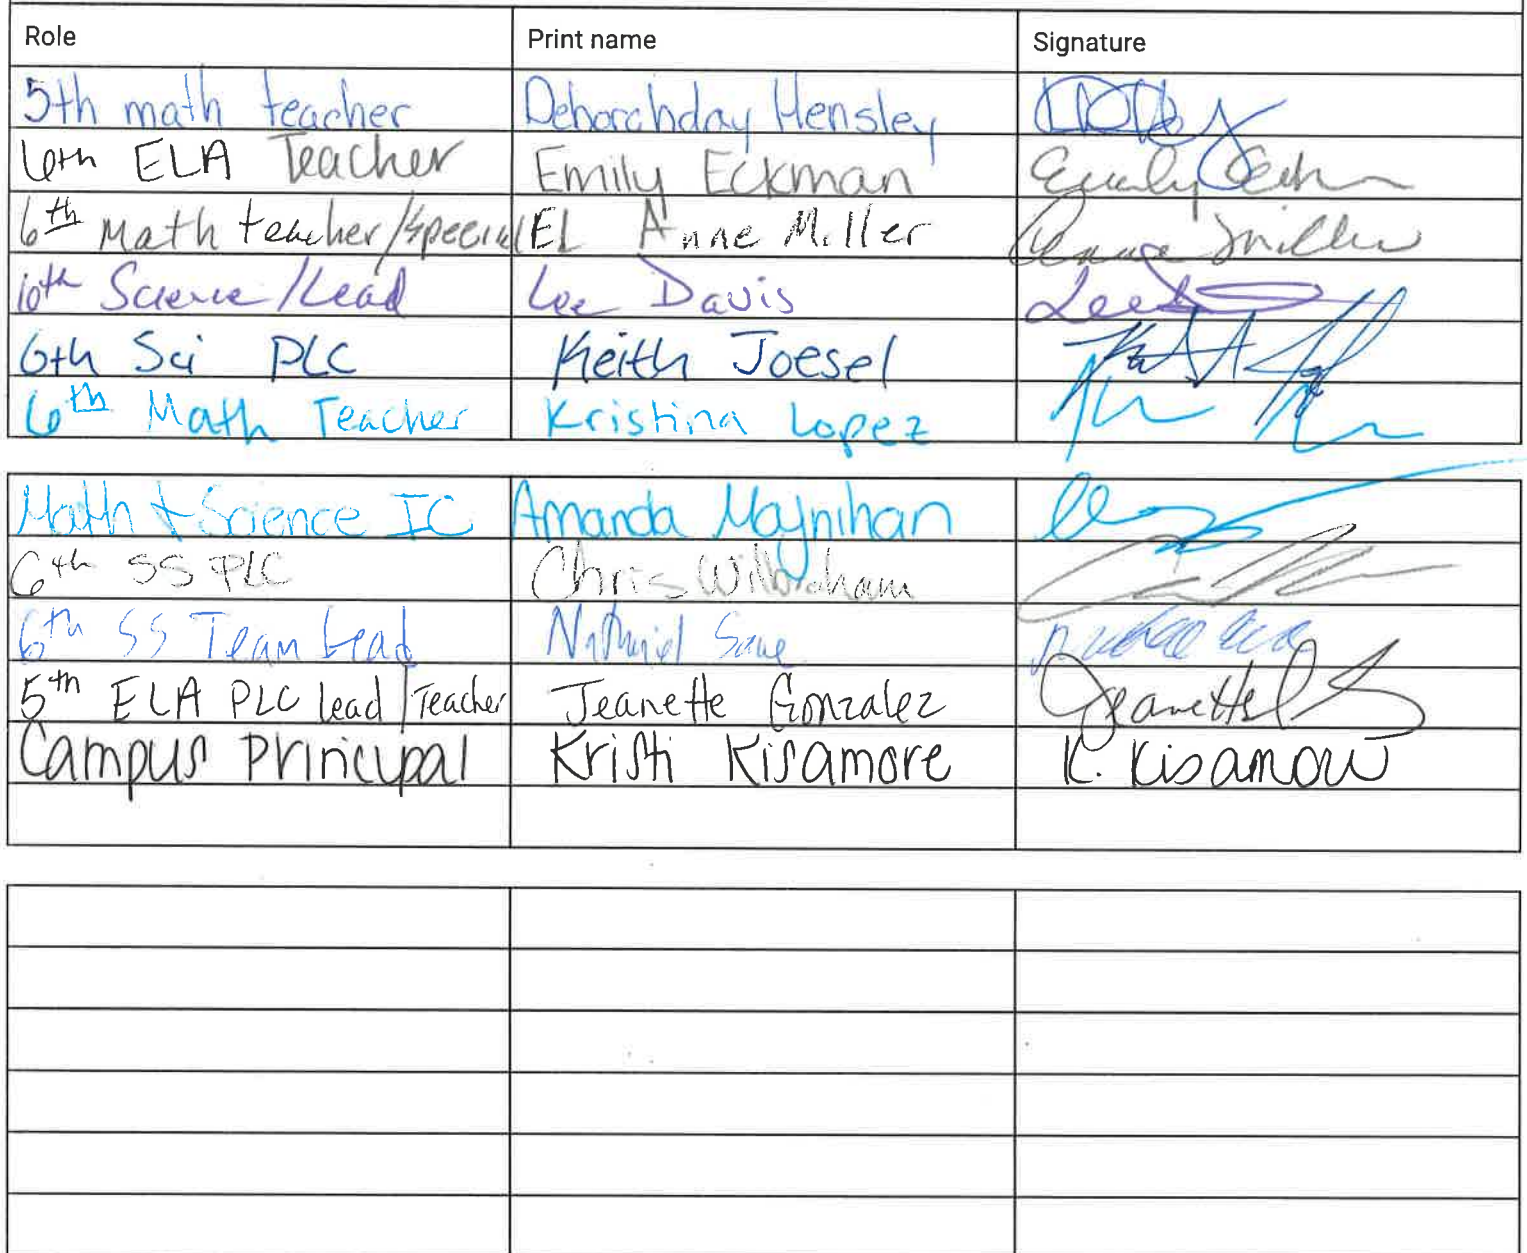 Role Print name Signature
5th math teacher Deborahday Hensley
6th ELA Teacher Emily Eckman Emily
6th Math teacher/Special EL Anne Miller Anne Miller
6th Science/Lead Lee Davis Lee
6th Sci PLC Keith Joesel
6th Math Teacher Kristina Lopez
Math & Science IC Amanda Moynihan
6th SS PLC Chris Wilbraham
6th SS Team Lead
5th ELA PLC lead/Teacher Jeanette Gonzalez Jeanette
Campus Principal Kristi Kisamore K. Kisamore